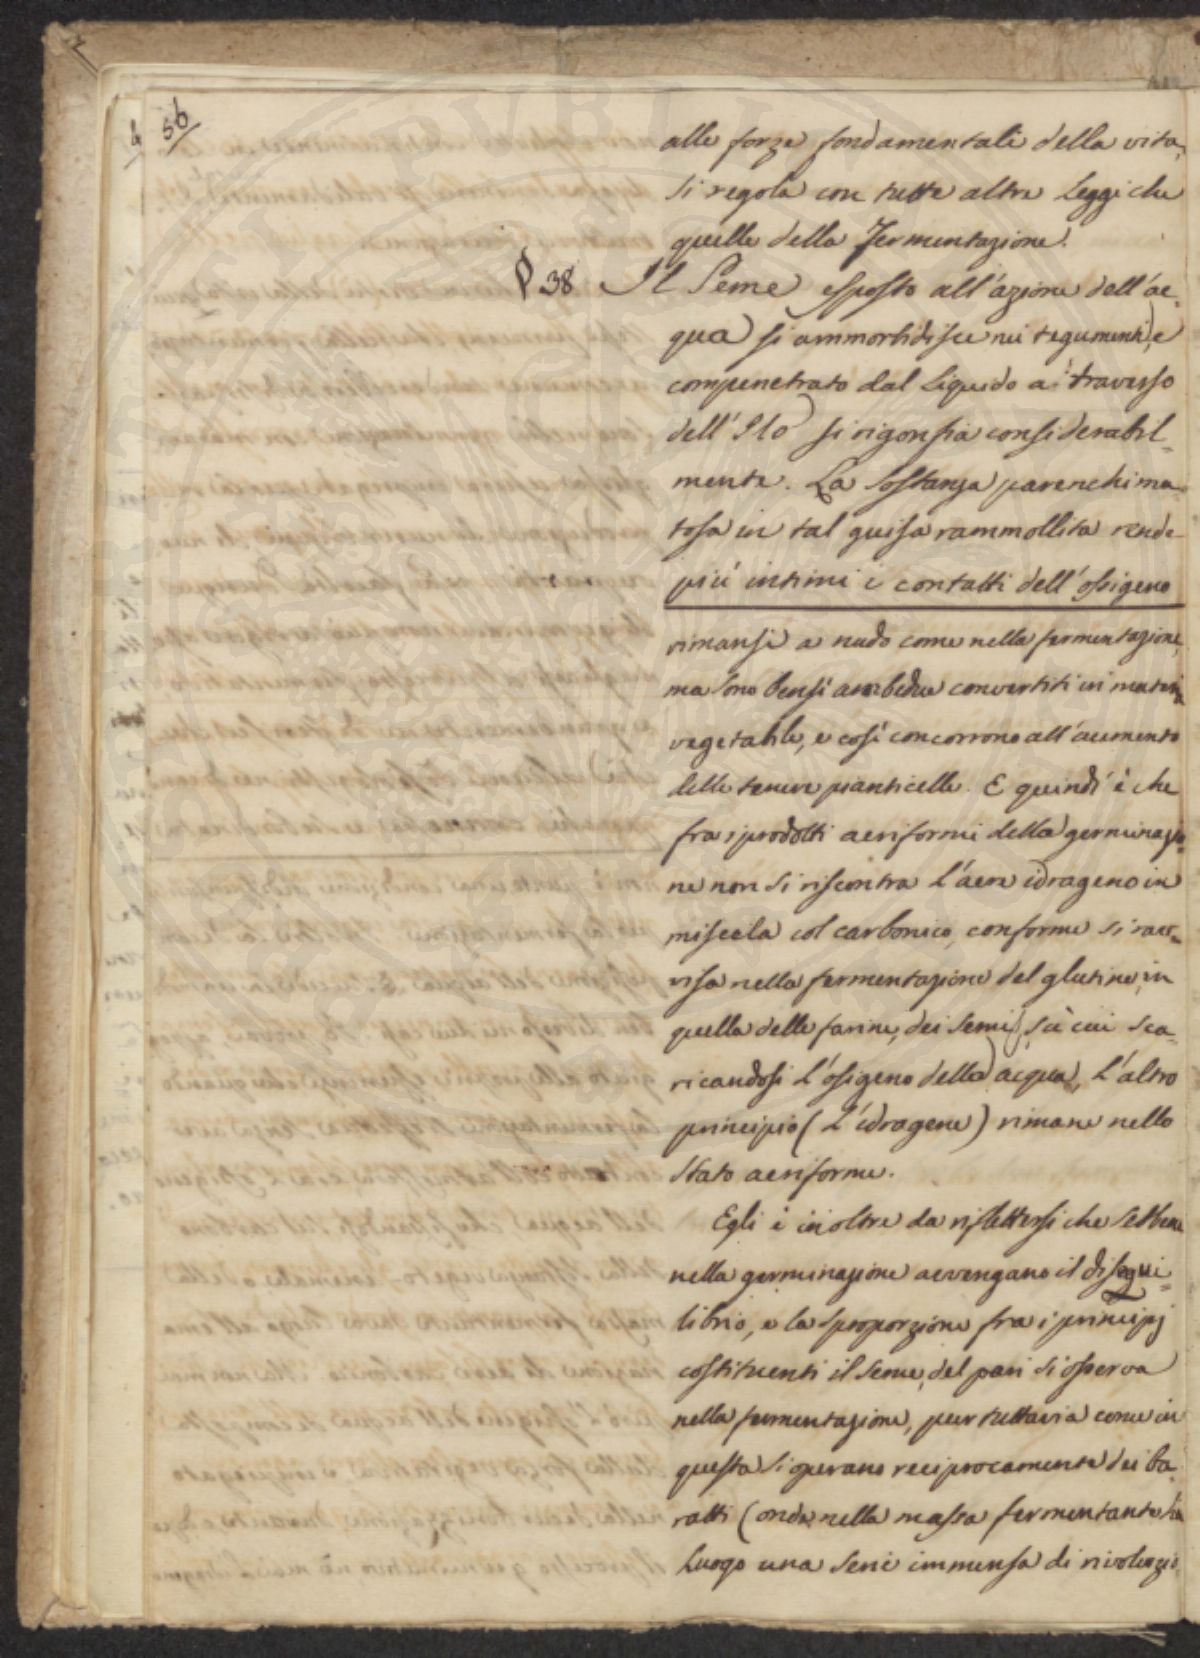 56
alle forze fondamentali della vita,
si regola con tutte altre Leggi che
quelle della Fermentazione.
§ 38 Il Seme esposto all'azione dell'ac=
qua si ammorbidisce nei tegumenti, e
compenetrato dal Liquido a traverso
dell'Ilo si rigonfia considerabil=
mente. La Sostanza parenchima
tosa in tal guisa rammollita rende
più intimi i contatti dell'ossigeno
rimansi a nudo come nella fermentazione,
ma sono bensì ambedue convertiti in materia
vegetabile, e così concorrono all'aumento
delle tenere pianticelle. E quindi è che
fra i prodotti aeriformi della germinazio=
ne non si riscontra l'aere idrageno in
miscela col carbonico, conforme si rav=
visa nella fermentazione del glutine, in
quella delle farine, dei Semi, su cui sca=
ricandosi L'ossigeno della acqua, L'altro
principio (L'idragene) rimane nello
Stato aeriforme.
Egli è inoltre da riflettersi che Sebbene
nella germinazione avvengano il disequi=
librio, e la sproporzione fra i principj
costituenti il seme, del pari si osserva
nella fermentazione, pur tuttavia come in
questa si operano reciprocamente dei ba=
ratti (onde nella massa fermentante ha
Luogo una Serie immensa di rivoluzio